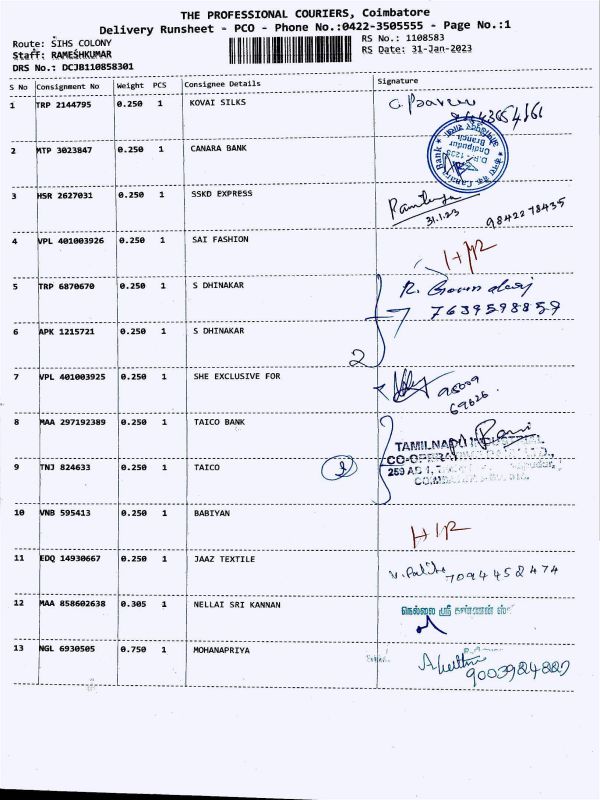 THE PROFESSIONAL COURIERS, Coimbatore
Delivery Runsheet - PCO - Phone No.:0422-3505555 - Page No.:1
Route: SIHS COLONY RS No.: 1108583
Staff: RAMESHKUMAR RS Date: 31-Jan-2023
DRS No.: DCJB110858301
S No Consignment No Weight PCS Consignee Details Signature
1 TRP 2144795 0.250 1 KOVAI SILKS
2 MTP 3023847 0.250 1 CANARA BANK
Branch
Ondipudur
Canara Bank
3 HSR 2627031 0.250 1 SSKD EXPRESS
31.1.23 9842278435
4 VPL 401003926 0.250 1 SAI FASHION H/R
5 TRP 6870670 0.250 1 S DHINAKAR
7639598859
6 APK 1215721 0.250 1 S DHINAKAR
2
7 VPL 401003925 0.250 1 SHE EXCLUSIVE FOR
95009
69626
8 MAA 297192389 0.250 1 TAICO BANK
TAMILNADU INDUSTRIAL
9 TNJ 824633 0.250 1 TAICO 2
10 VNB 595413 0.250 1 BABIYAN H/R
11 EDQ 14930667 0.250 1 JAAZ TEXTILE 7094458474
12 MAA 858602638 0.305 1 NELLAI SRI KANNAN நெல்லை ஸ்ரீ கண்ணன்
13 NGL 6930505 0.750 1 MOHANAPRIYA